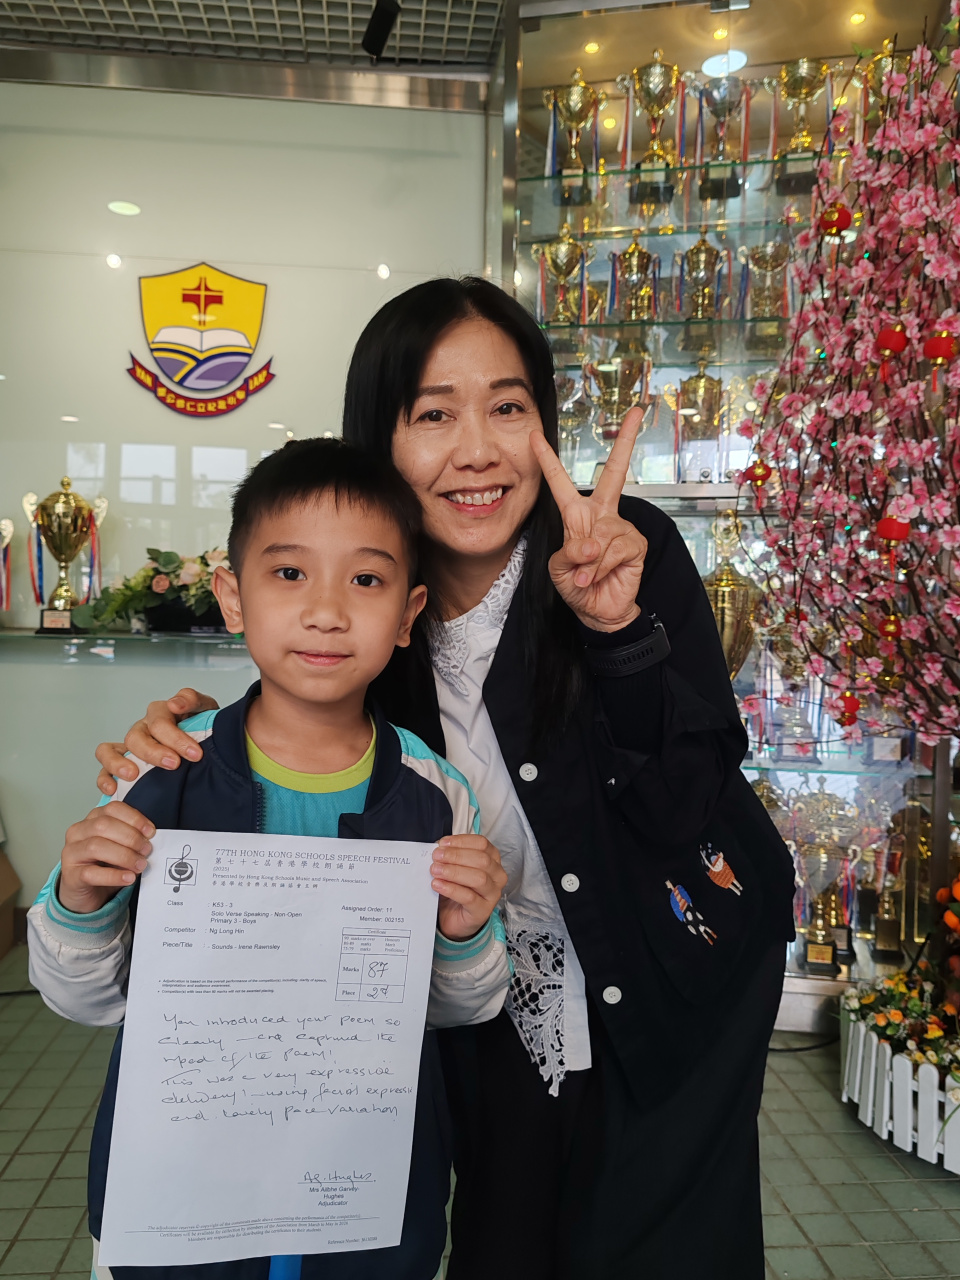 77TH HONG KONG SCHOOLS SPEECH FESTIVAL
第七十七屆香港學校朗誦節
(2025)
Presented by Hong Kong Schools Music and Speech Association
香港學校音樂及朗誦協會主辦
Class : K53 - 3
Solo Verse Speaking - Non-Open
Primary 3 - Boys
Assigned Order: 11
Member: 002153
Competitor : Ng Long Hin
Piece/Title : - Sounds - Irene Rawnsley
Certificate
90 marks or over Honours
80-89 marks Merit
75-79 marks Proficiency
Marks 87
Place 2nd
You introduced your poem so
clearly - and captured the
mood of the poem!
This was a very expressive
delivery! - using facial expressi
and lovely pace variation
A.G. Hughes
Mrs Ailbhe Garvey-
Hughes
Adjudicator
YAN
LAAP